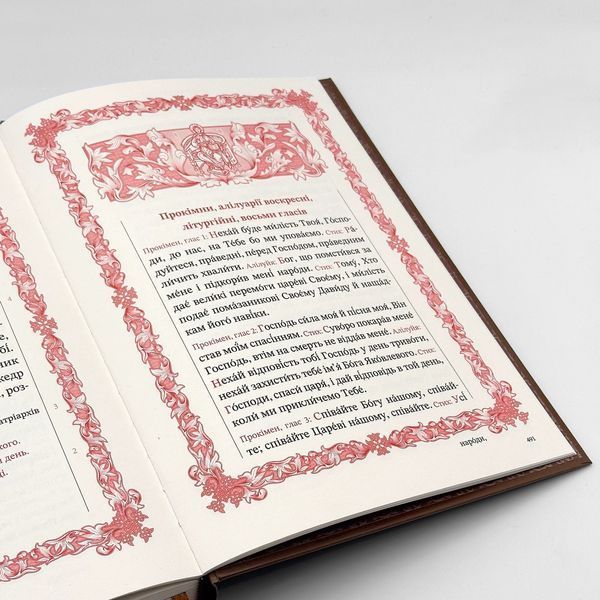 ник
кедр
роз-
атріархів
4
3
кого,
і день.
2
Прокі́мни, алілуарії воскресні,
літургійні, восьми гласів
Прокімен, глас 1: Неха́й бу́де ми́лість Твоя́, Го́спо-
ди, до нас, на Те́бе бо ми упова́ємо. Стих: Ра́-
дуйтеся, пра́ведні, пе́ред Го́сподом, пра́ведним
ли́чить хвали́ти. Алілуія: Бог, що помсти́вся за
ме́не і підкори́в мені́ наро́ди. Стих: То́му, Хто
дає́ вели́кі перемо́ги царе́ві Своє́му, і ми́лість
подає́ пома́занникові Своє́му Дави́ду й наща́д-
кам його́ наві́ки.
Прокімен, глас 2: Госпо́дь си́ла моя́ й пі́сня моя́, Він
став мої́м спасі́нням. Стих: Суво́ро покара́в мене́
Госпо́дь, втім на смерть не відда́в мене́. Алілуія:
Неха́й відпові́сть тобі́ Госпо́дь у день триво́ги,
неха́й захисти́ть тебе́ ім'я́ Бо́га Я́ковлевого. Стих:
Го́споди, спаси́ царя́, і дай ві́дповідь в той день,
коли́ ми прикли́чемо Тебе́.
Прокімен, глас 3: Співа́йте Бо́гу на́шому, співа́й-
те; співа́йте Царе́ві на́шому, співа́йте. Стих: Усі́
наро́ди,
491